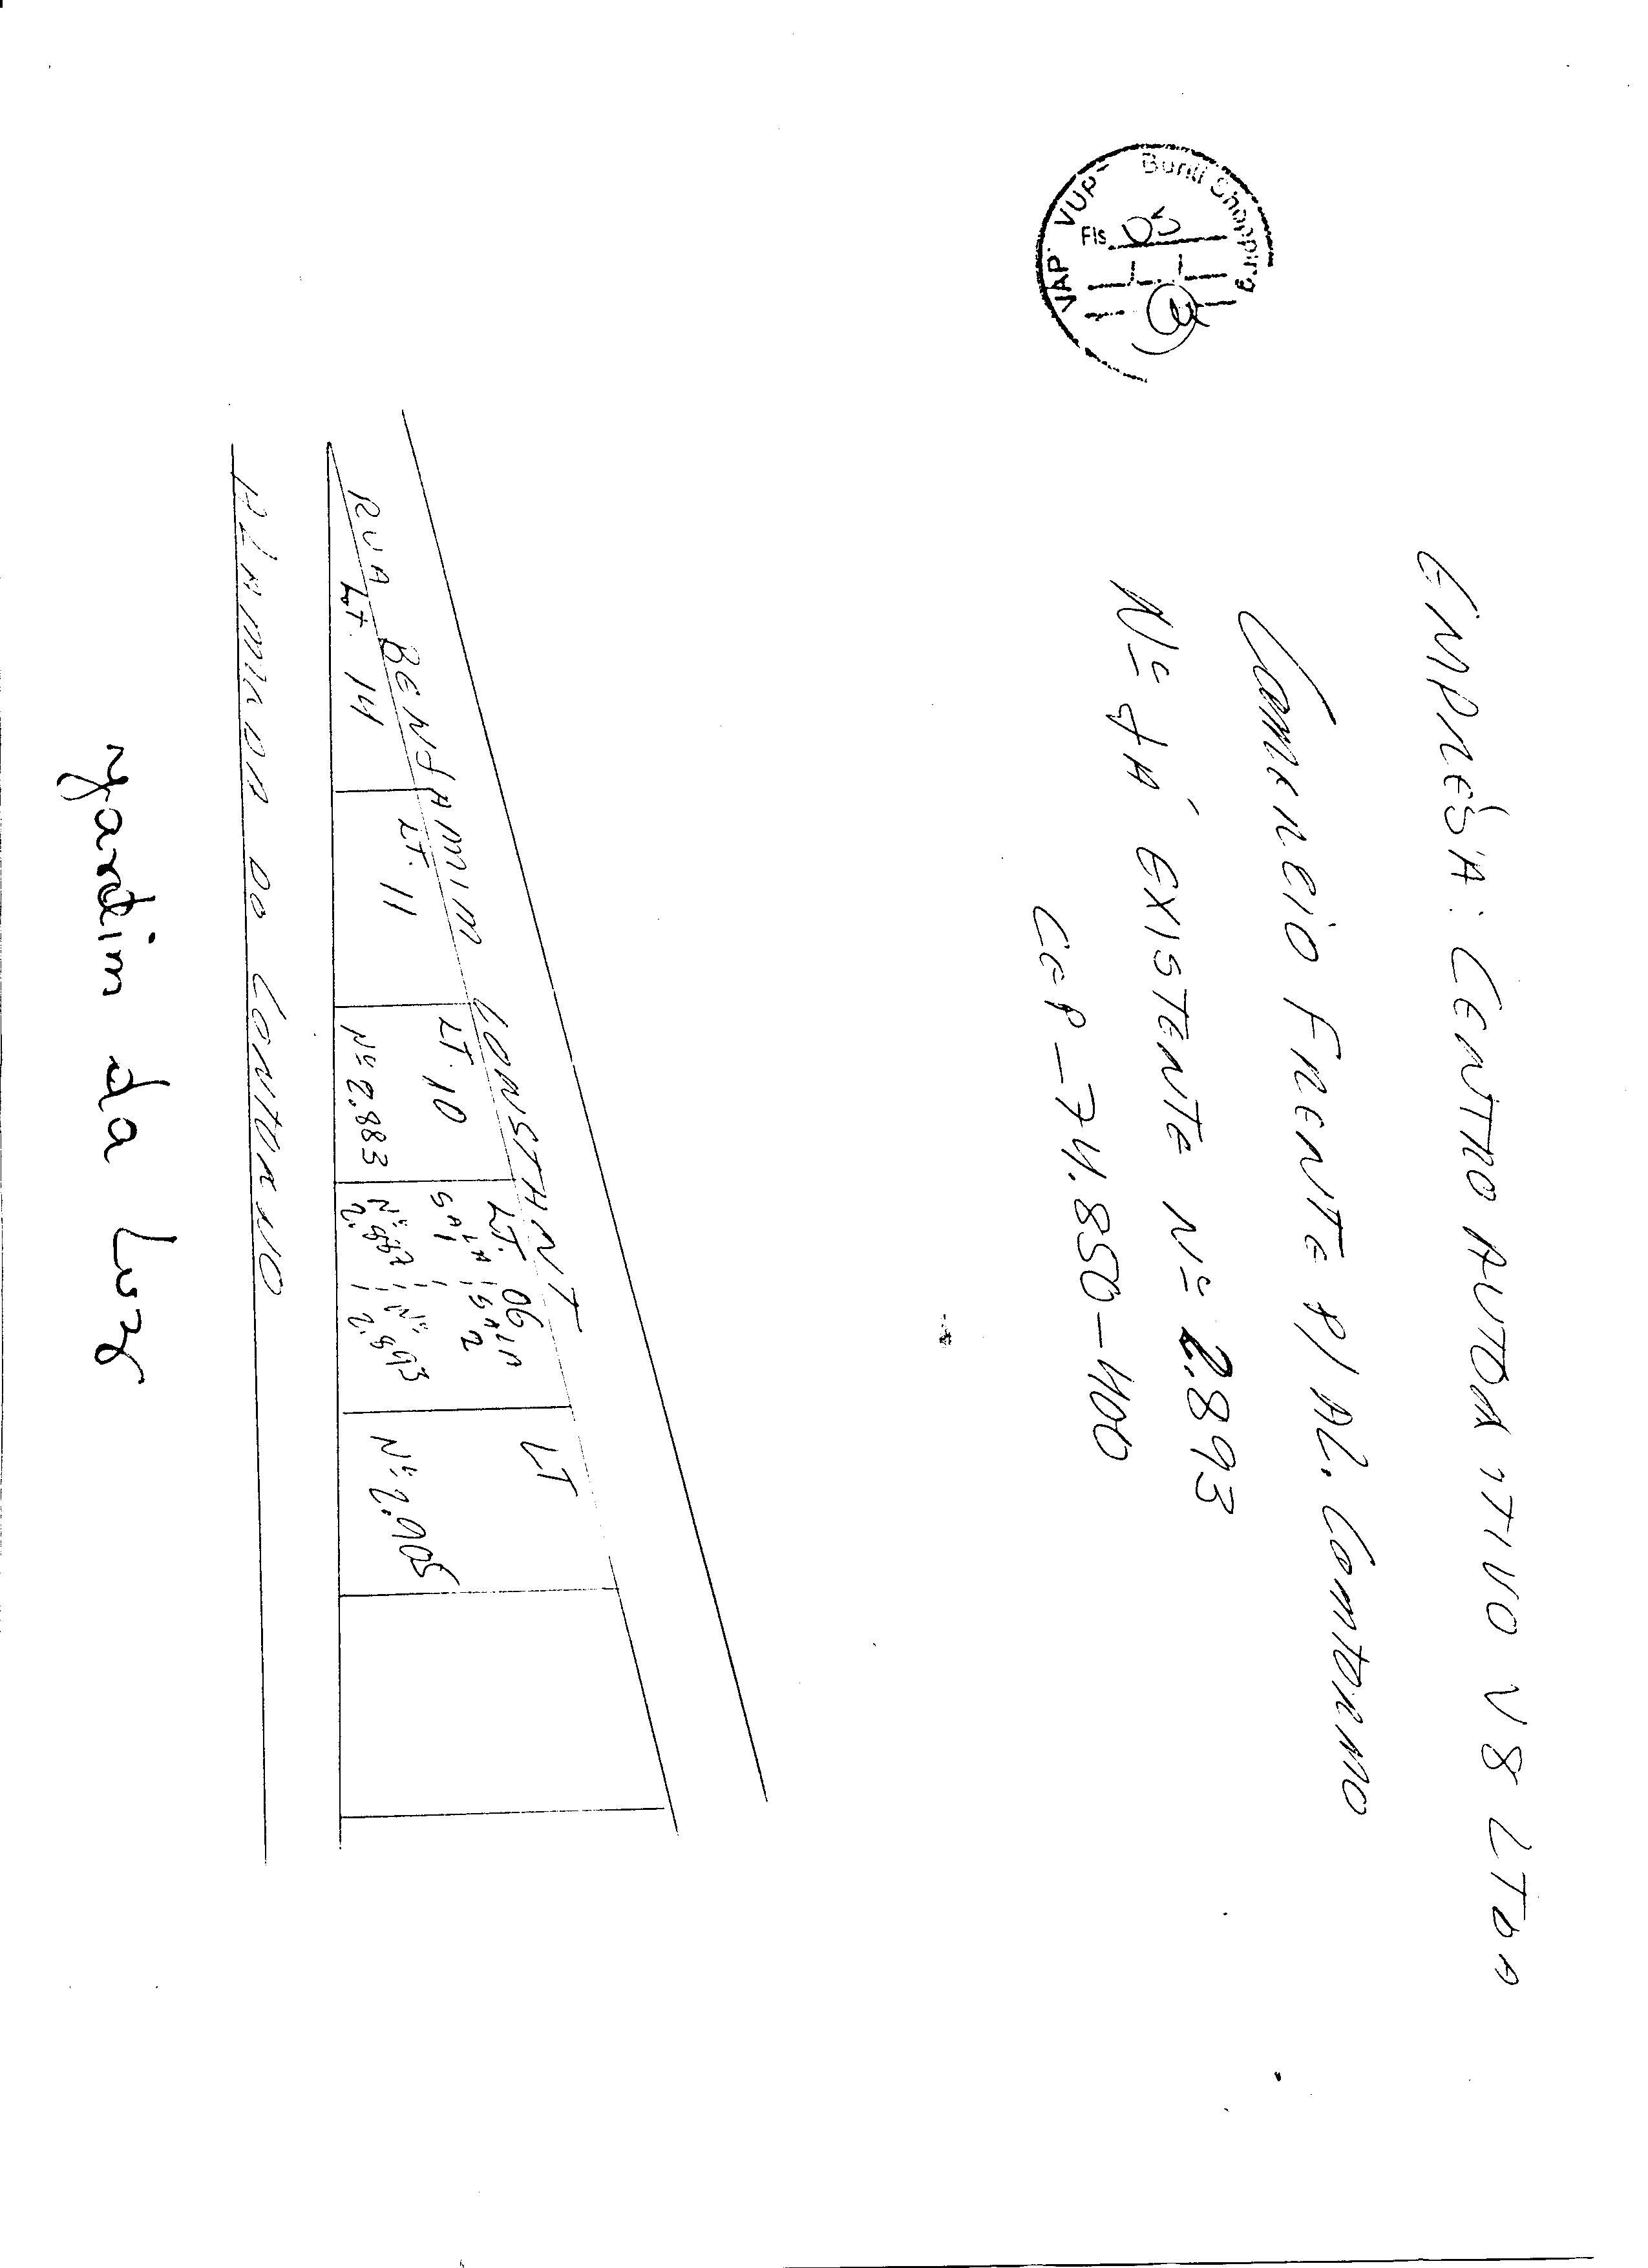 EMPRESA: CENTRO AUTOMOTIVO V8 LTDA
Comercio Frente P/ AL. Contorno
Nº JÁ EXISTENTE Nº 2.893
CEP - 74.850-400
VAP VUP - Buriti Shopping
Fls. 05
RUA BENJAMIM CONSTANT
LT. 14
LT. 11
LT. 10
Nº 2.883
LT. 06
SALA 1
SALA 2
Nº 2.887
Nº 2.893
LT
Nº 2.905
ALAMEDA DO CONTORNO
Jardim da Luz